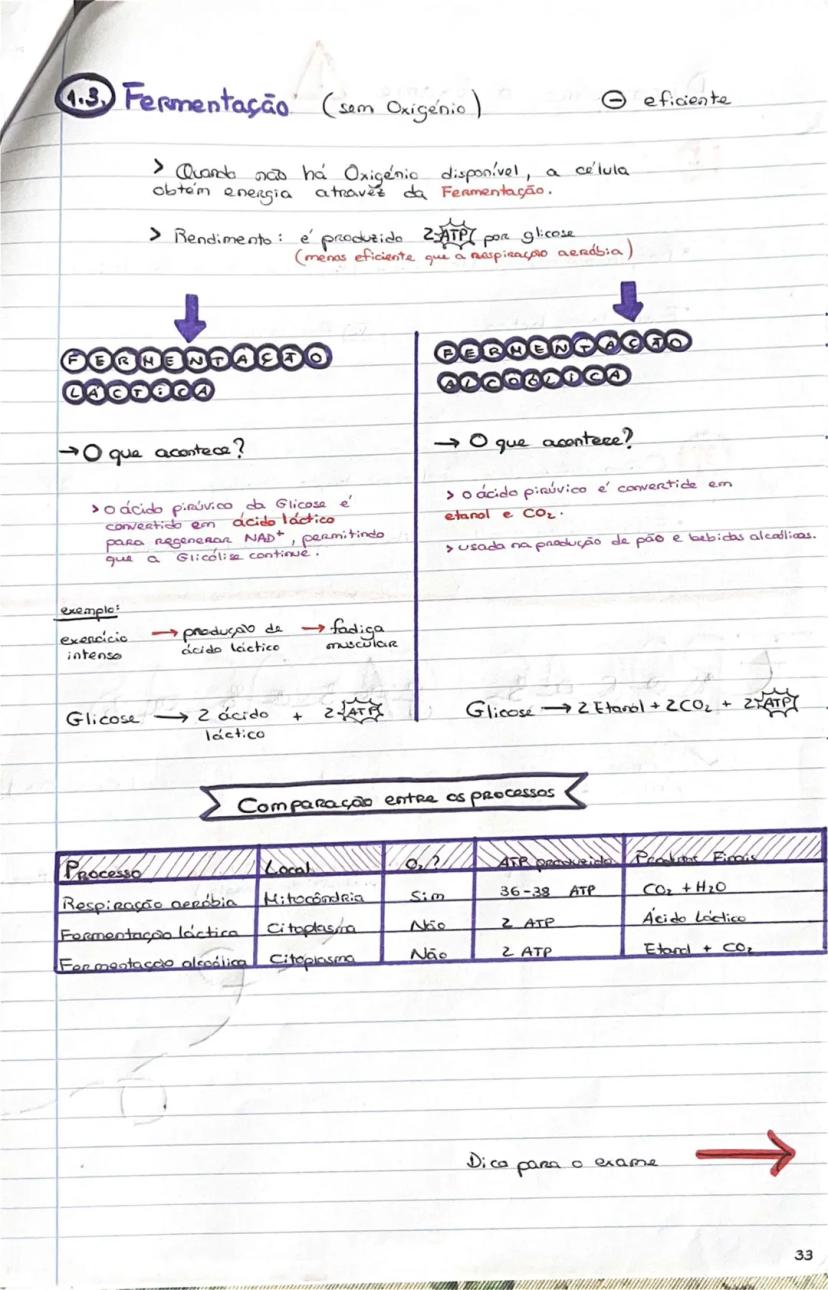 1.3. Fermentação (sem Oxigénio) ⊖ eficiente
> Quando não há Oxigénio disponível, a célula
obtém energia através da Fermentação.
> Rendimento: é produzido 2 ATP por glicose
(menos eficiente que a respiração aeróbia)
FERMENTAÇÃO
LÁCTICA
→ O que acontece?
> O ácido pirúvico da Glicose é
convertido em ácido láctico
para regenerar NAD+, permitindo
que a Glicólise continue.
exemplo:
exercício → produção de → fadiga
intenso ácido láctico muscular
Glicose → 2 ácido + 2 ATP
láctico
FERMENTAÇÃO
ALCOÓLICA
→ O que acontece?
> o ácido pirúvico é convertido em
etanol e CO₂.
> usada na produção de pão e bebidas alcoólicas.
Glicose → 2 Etanol + 2CO₂ + 2 ATP
Comparação entre os processos
Processo Local O₂? ATP produzido Produtos Finais
Respiração aeróbia Mitocôndria Sim 36-38 ATP CO₂ + H₂O
Fermentação láctica Citoplasma Não 2 ATP Ácido Láctico
Fermentação alcoólica Citoplasma Não 2 ATP Etanol + CO₂
Dica para o exame →
33